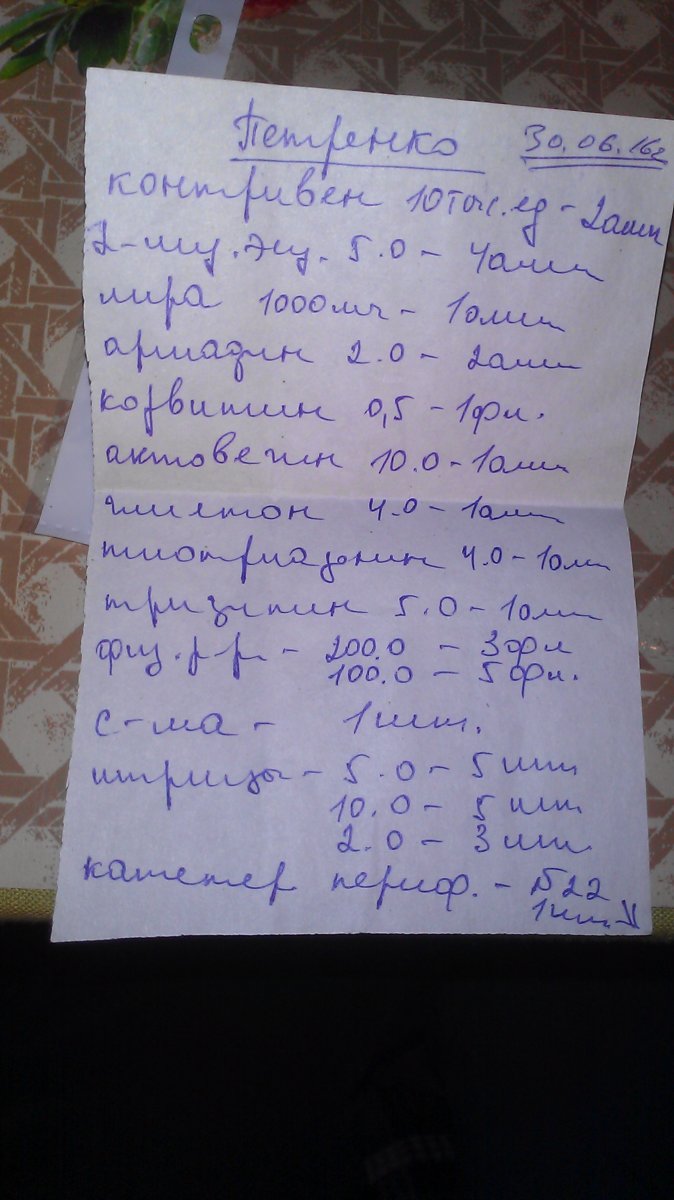 Петренко 30.06.16г
контривен 10тыс.ед - 2амп
L-лиз.эсц. 5.0 - 4амп
лира 1000мг - 1амп
армадин 2.0 - 2амп
корвитин 0,5 - 1фл.
актовегин 10.0 - 1амп
глиятон 4.0 - 1амп
тиотриазолин 4.0 - 1амп
тризипин 5.0 - 1амп
физ.р-р. - 200.0 - 3фл
100.0 - 5фл.
с-ма - 1шт.
шприцы - 5.0 - 5шт
10.0 - 5шт
2.0 - 3шт.
катетер периф. - №22
1шт.